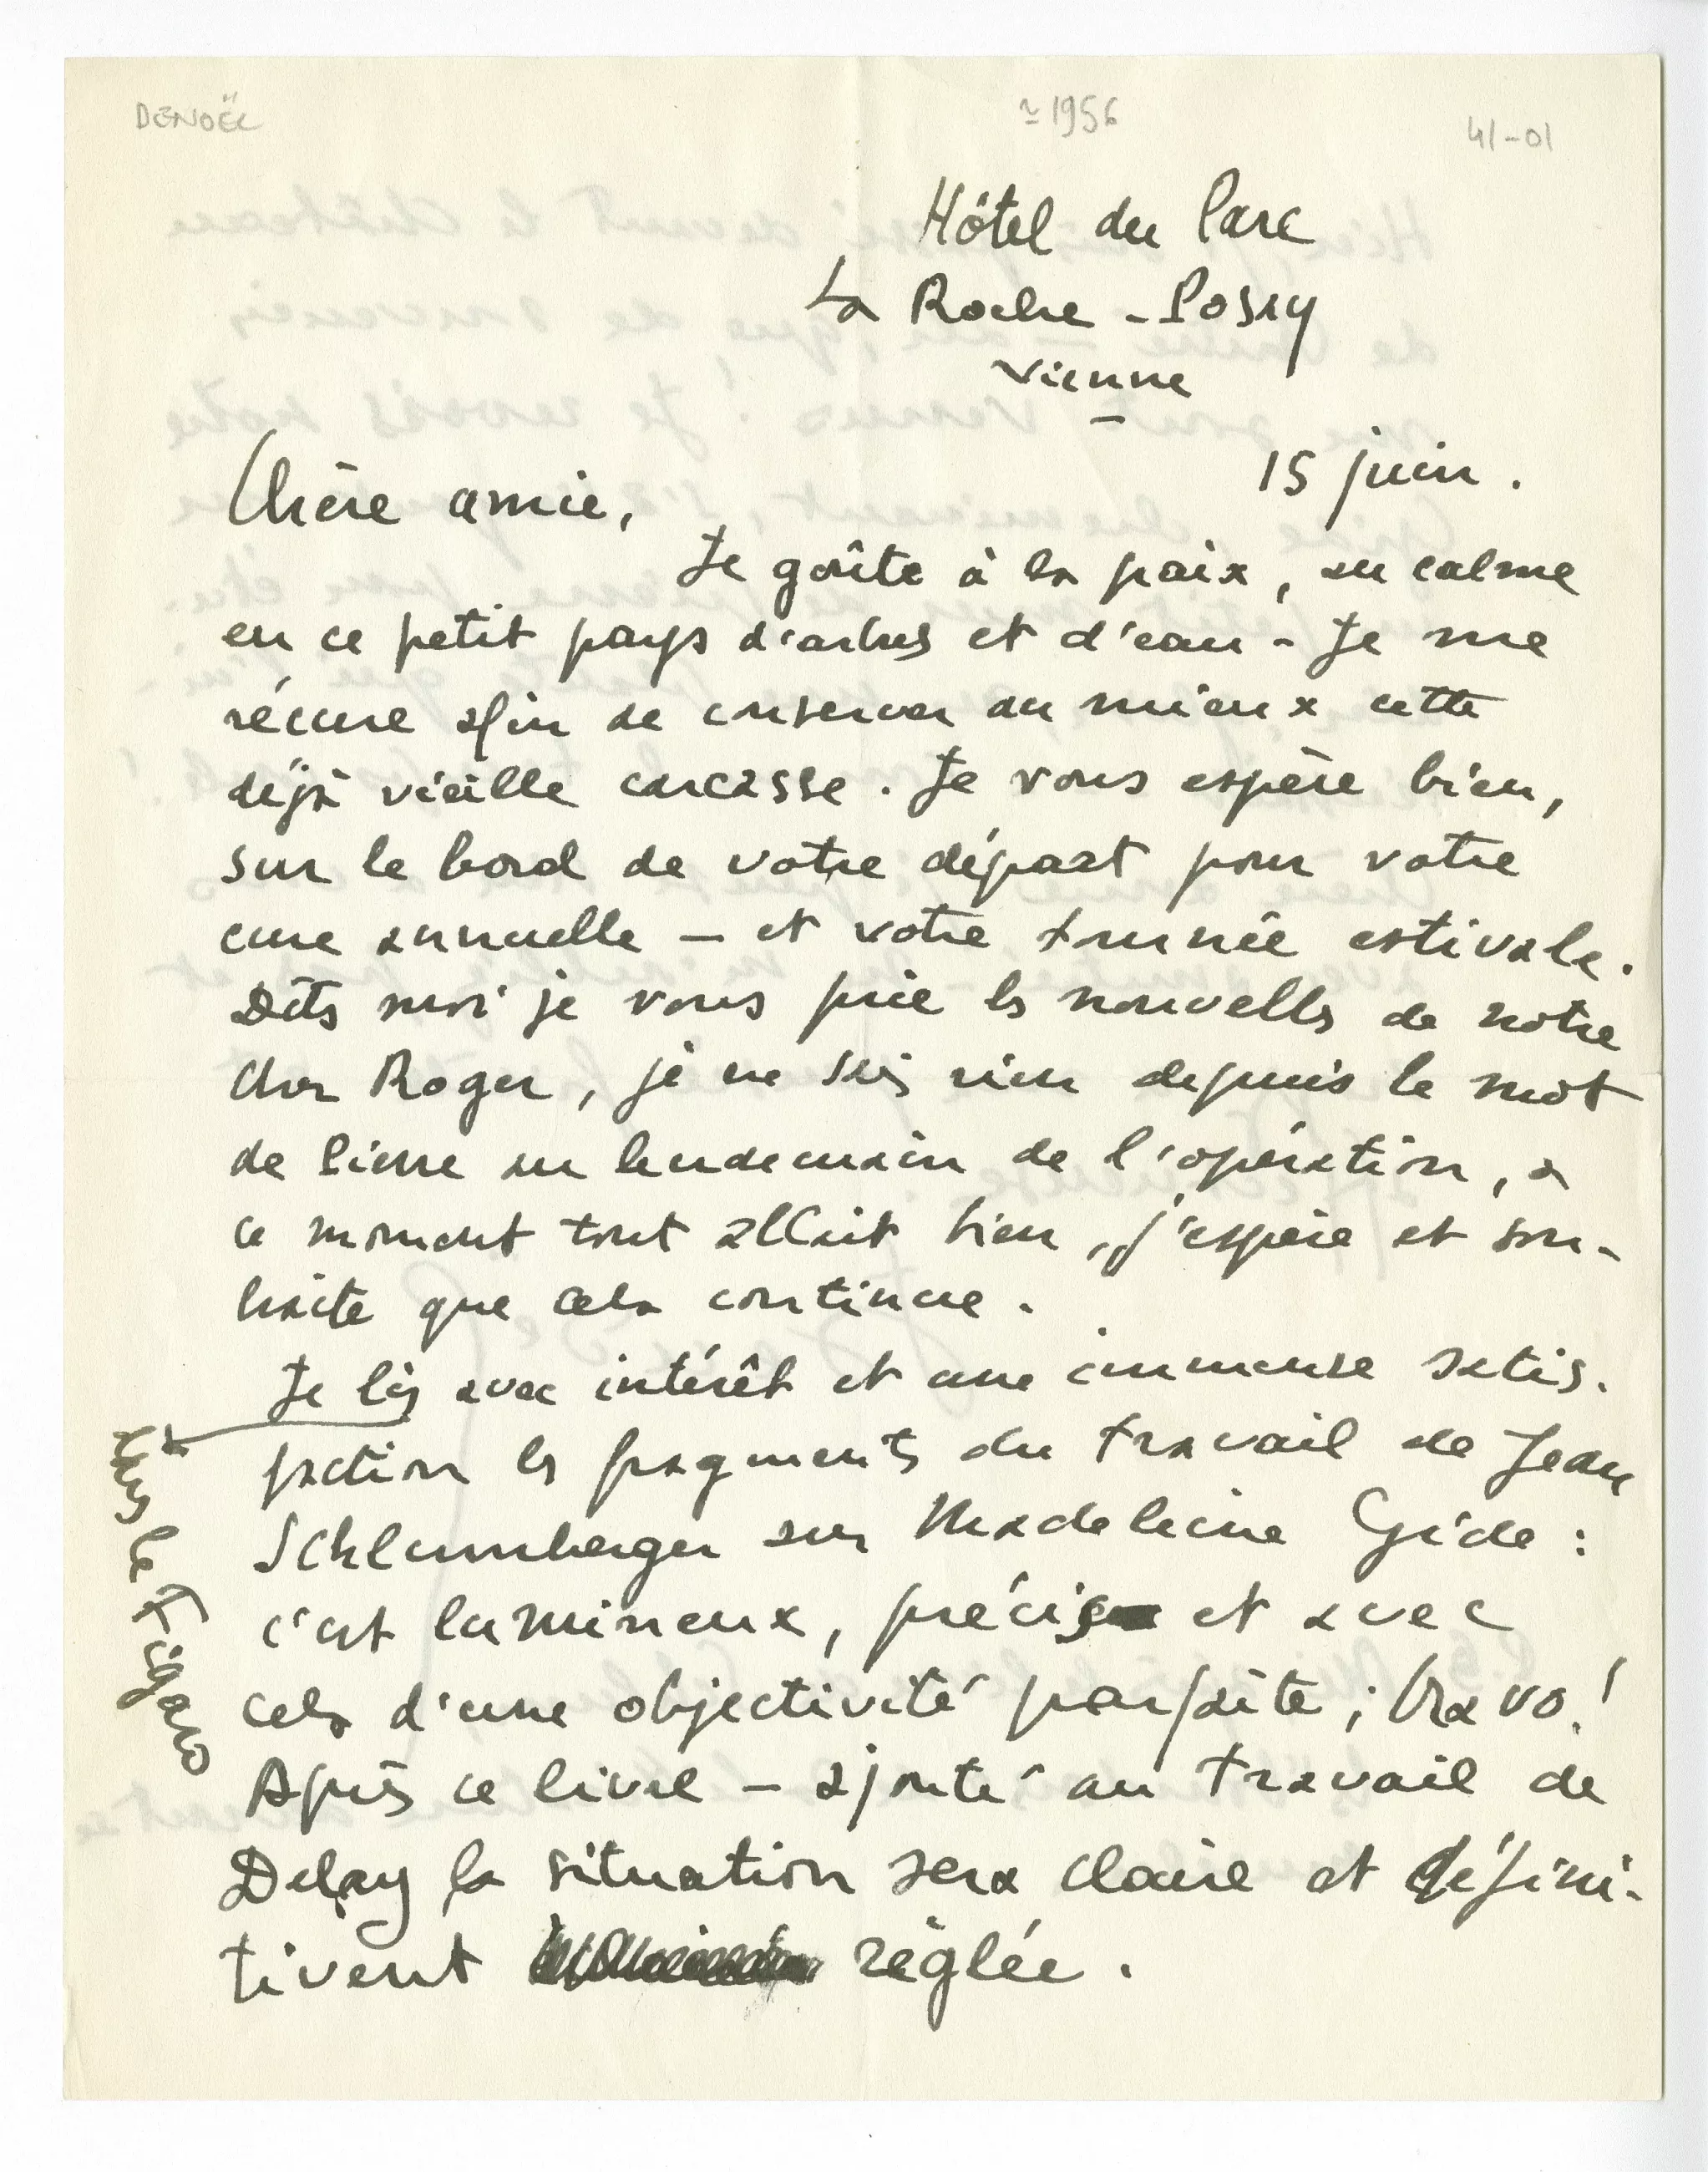 DENOËL
≃ 1956
41-01
Hôtel du Parc
La Roche-Posay
Vienne
15 juin.
Chère amie,
Je goûte à la paix, au calme
en ce petit pays d'arbres et d'eau - Je me
récure afin de conserver au mieux cette
déjà vieille carcasse. Je vous espère bien,
sur le bord de votre départ pour votre
cure annuelle – et votre tournée estivale.
Dites moi je vous prie les nouvelles de notre
cher Roger, je ne sais rien depuis le mot
de Pierre au lendemain de l'opération, à
ce moment tout allait bien, j'espère et sou-
haite que cela continue.
Je lis avec intérêt et une immense satis-
dans le Figaro
faction les fragments du travail de Jean
Schlumberger sur Madeleine Gide :
c'est lumineux, précis et avec
cela d'une objectivité parfaite ; bravo !
Après ce livre – ajouté au travail de
Delay la situation sera claire et défini-
tivent réglée.